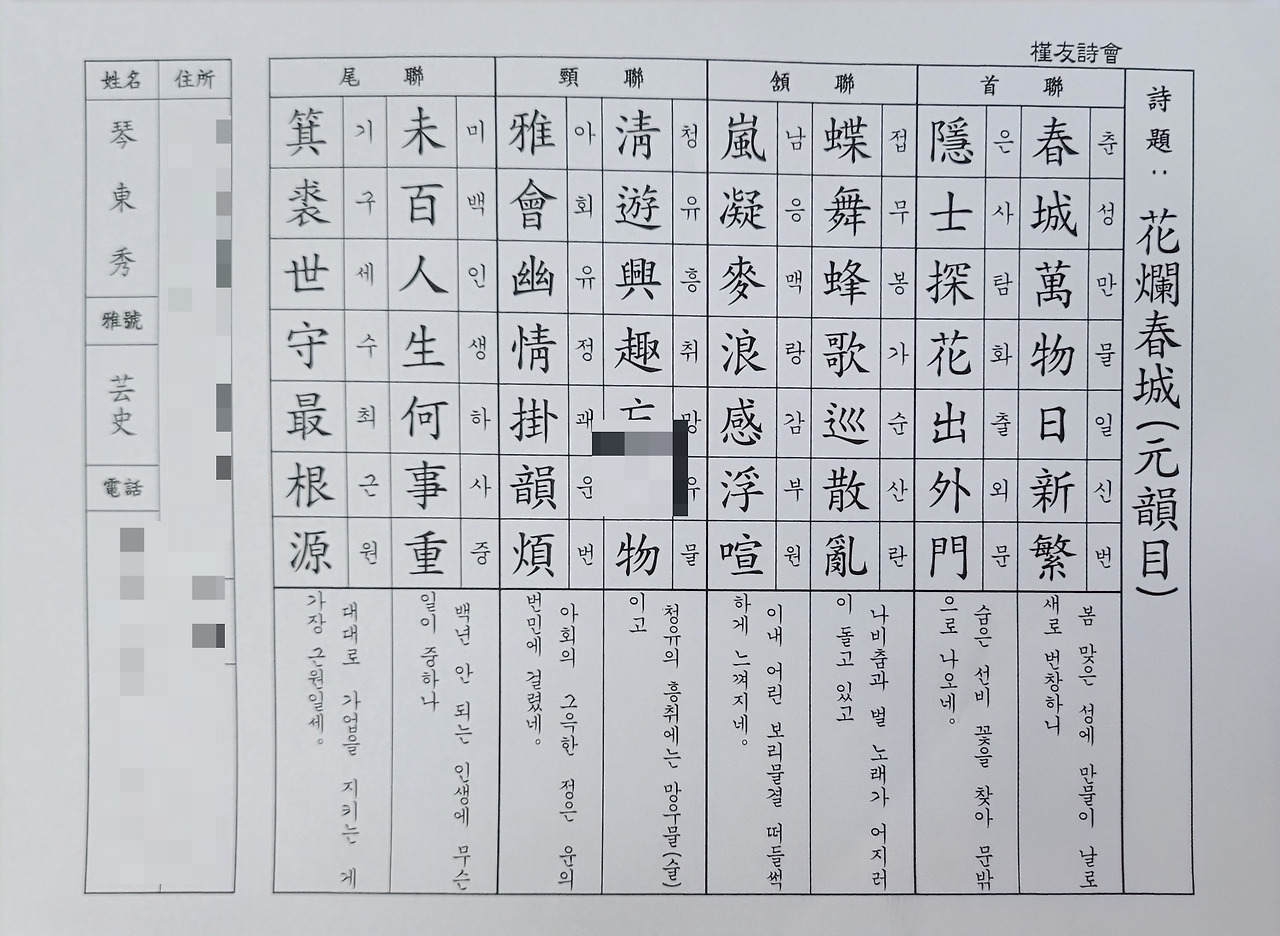 槿友詩會
詩題: 花爛春城(元韻目)
首聯
春城萬物日新繁
춘성만물일신번
봄 맞은 성에 만물이 날로
새로 번창하니
隱士探花出外門
은사탐화출외문
숨은 선비 꽃을 찾아 문밖
으로 나오네。
頷聯
蝶舞蜂歌巡散亂
접무봉가순산란
나비춤과 벌 노래가 어지러
이 돌고 있고
嵐凝麥浪感浮喧
남응맥랑감부원
이내 어린 보리물결 떠들썩
하게 느껴지네。
頸聯
淸遊興趣物
청유흥취망우물
청유의 흥취에는 망우물(술)
이고
雅會幽情掛韻煩
아회유정괘운번
아회의 그윽한 정은 운의
번민에 걸렸네。
尾聯
未百人生何事重
미백인생하사중
백년 안 되는 인생에 무슨
일이 중하나
箕裘世守最根源
기구세수최근원
대대로 가업을 지키는 게
가장 근원일세。
住所
姓名
琴東秀
雅號
芸史
電話